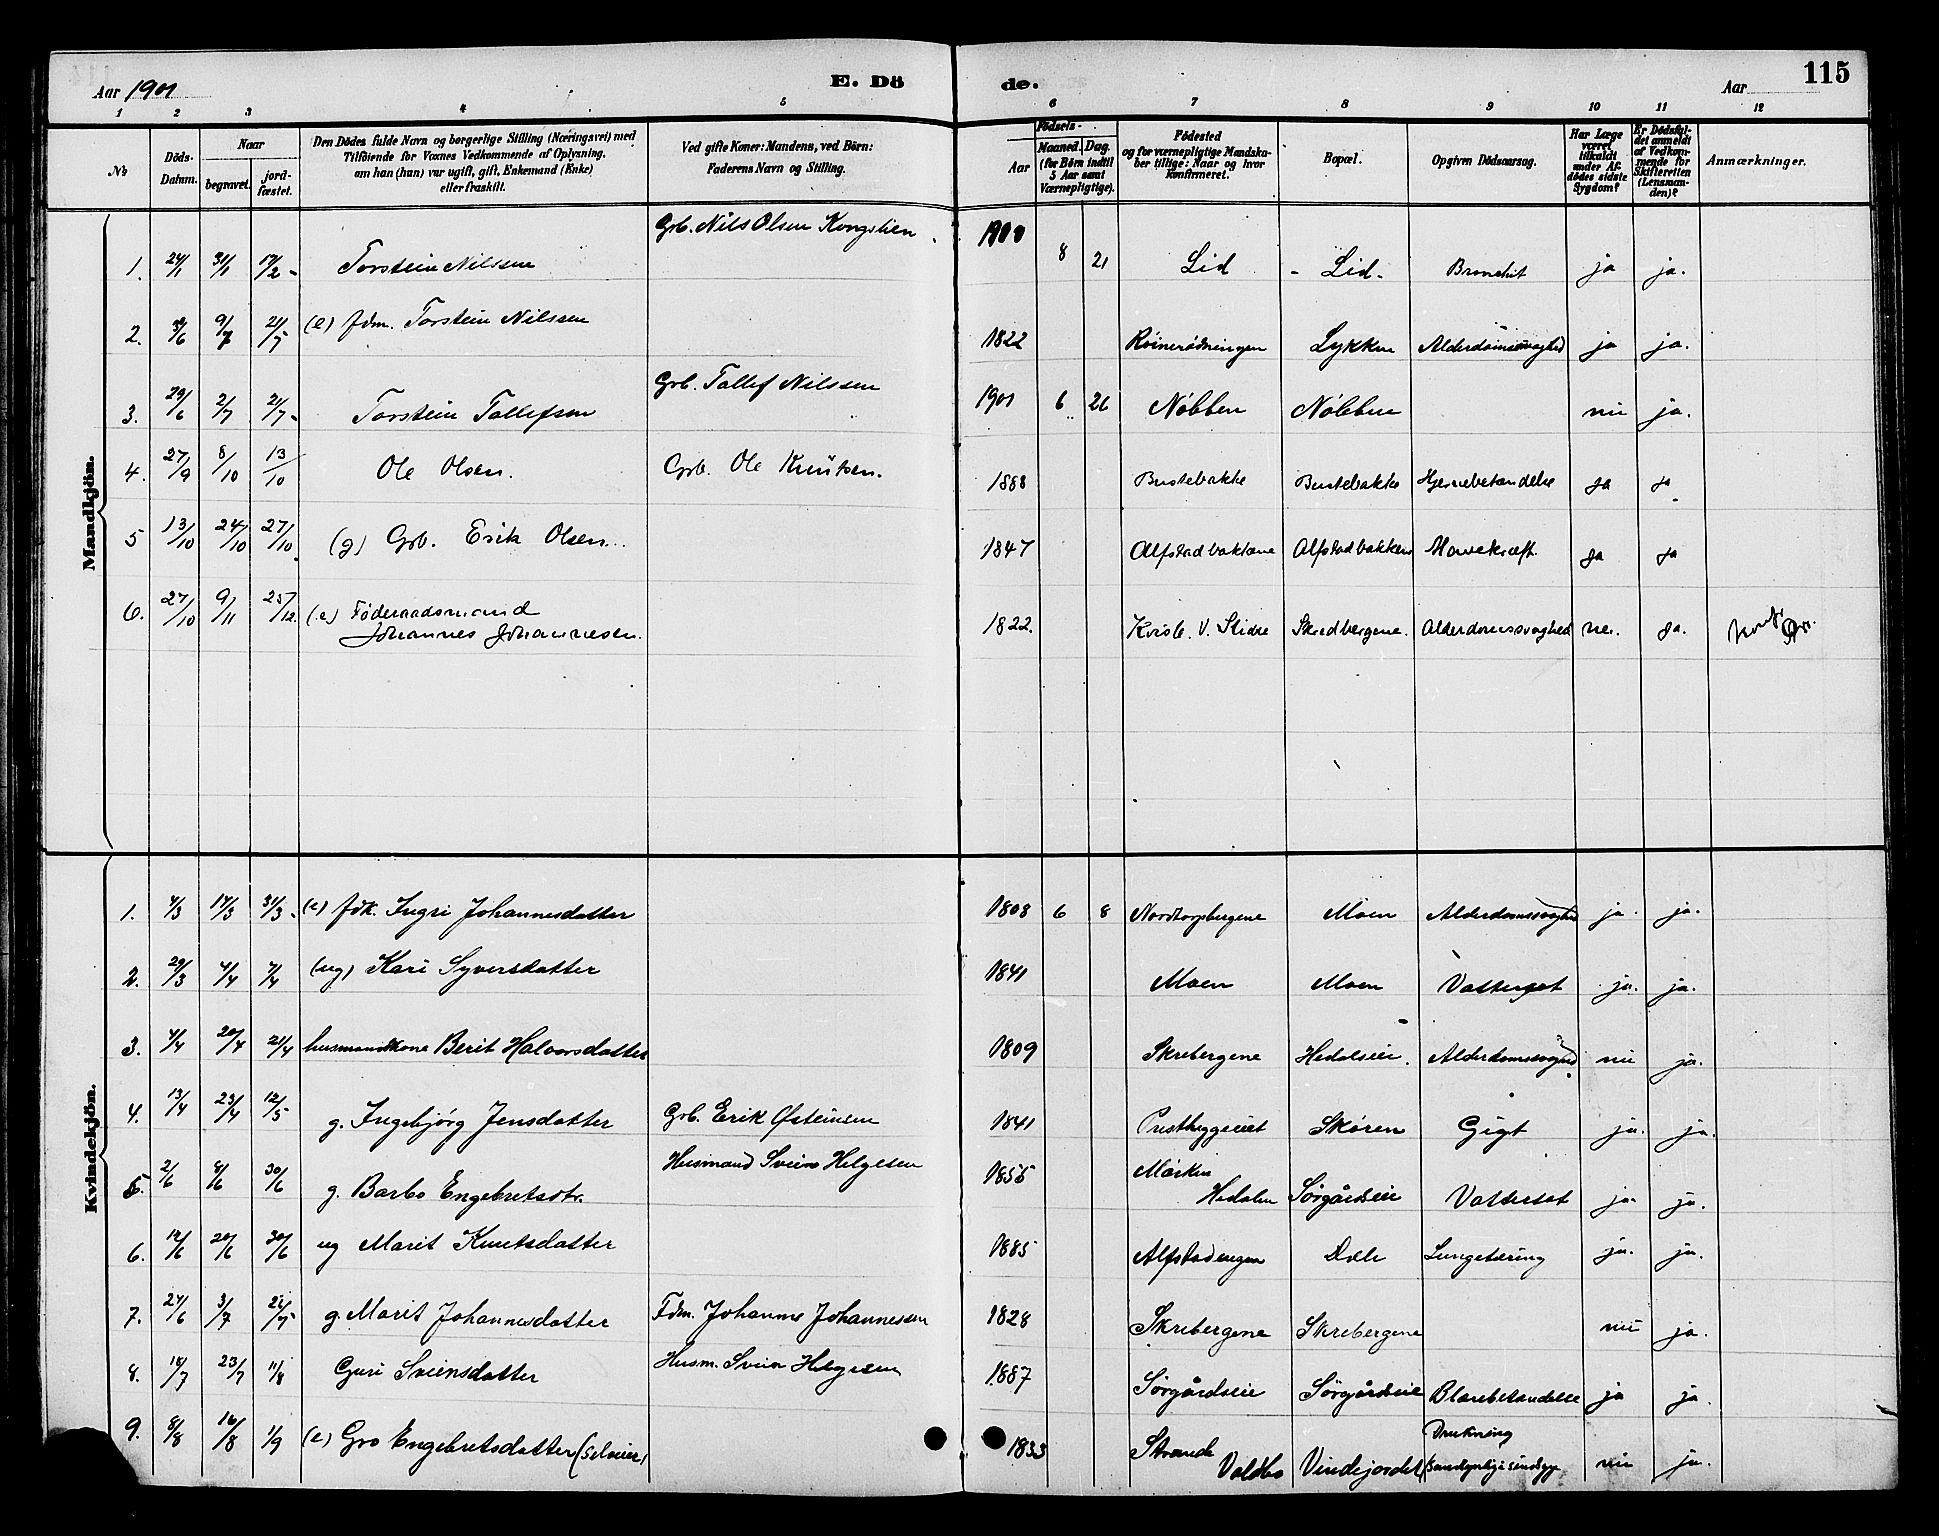 Aar 1901
E. Dö
de.
Aar
115
1 2 3 4 5 6 7 8 9 10 11 12
No
Döds-Datum.
Naar begravet. jordfæstet.
Den Dödes fulde Navn og borgerlige Stilling (Næringsvei) med Tilföiende for Voxnes Vedkommende af Oplysning, om han (hun) var ugift, gift, Enkemand (Enke) eller fraskilt.
Ved gifte Koner: Mandens, ved Börn: Faderens Navn og Stilling.
Födsels- Aar Maaned. Dag. (for Börn indtil 5 Aar samt Værnepligtige).
Födested og for værnepligtige Mandskaber tillige: Naar og hvor konfirmeret.
Bopæl.
Opgiven Dödsaarsag.
Har Læge været tilkaldt under Afdödes sidste Sygdom?
Er Dödsfaldet anmeldt af Vedkommende for Skifteretten (Lensmanden)?
Anmærkninger.
Mandkjön.
1. 24/1 31/1 17/2 - Torstein Nilssen Grb. Nils Olsen Kongslien 1900 8 21 Lid - Lid. Bronchit ja ja.
2. 30/6 9/7 21/7 (e) fdm. Torstein Nilssen 1822 Røinerødningen Lykken Alderdomssvaghed ja ja.
3. 29/6 2/7 21/7 - Torstein Tollefsen Grb. Tollef Nilssen 1901 6 26 Nøbben Nøbben nei ja.
4. 27/9 8/10 13/10 Ole Olsen. Grb. Ole Knutsen. 1888 Bustebakke Bustebakke Hjernebetændelse ja ja
5 13/10 24/10 27/10. (g) Grb. Erik Olsen 1847 Alfstadbakkene Alfstadbakken Mavekræft. ja ja
6. 27/10 9/11 25/12. (e) Føderaadsmand Johannes Johannesen. 1822. Kvisb. V. Slidre Skredbergene. Alderdomssvaghed nei. ja.
Kvindekjön.
1. 4/3 14/3 31/3. (e) fdk. Ingri Johannesdatter 1808 6 8 Nordtorpsbergene Moen Alderdomssvaghed ja. ja.
2. 29/3 4/4 7/4 (ug) Kari Syversdatter 1841 Moen Moen Vattersot ja. ja.
3. 4/4 20/4 21/4 husmandskone Berit Halvorsdatter 1809 Skrebergene Hedalseie. Alderdomssvaghed nei ja.
4. 13/4 23/4 12/5 g. Ingebjørg Jensdatter Grb. Erik Østeinsen 1841 Skøren Gigt ja. ja.
5. 2/6 8/6 30/6 g. Barbo Engebretsdtr. Husmand Svein Helgesen 1855 Hedalen Sørgårdseie Vattersot ja. ja.
6. 12/6 20/6 30/6 ug Marit Knutsdatter 1885 Alfstadengen Dæli Lungetæring ja. ja.
7. 24/6 3/7 21/7 g. Marit Johannesdatter Fdm. Johannes Johannessen 1828 Skrebergene Skrebergene nei ja.
8. 14/7 23/7 11/8 Guri Sveinsdatter Husm. Svein Helgesen 1887 Sørgårdseie Sørgårdseie Blærebetændelse ja ja.
9. 8/8 16/8 1/9 (e) Gro Engebretsdatter (Selseier) 1833 Strande Valdbo Vindejordet Drukning nei ja.